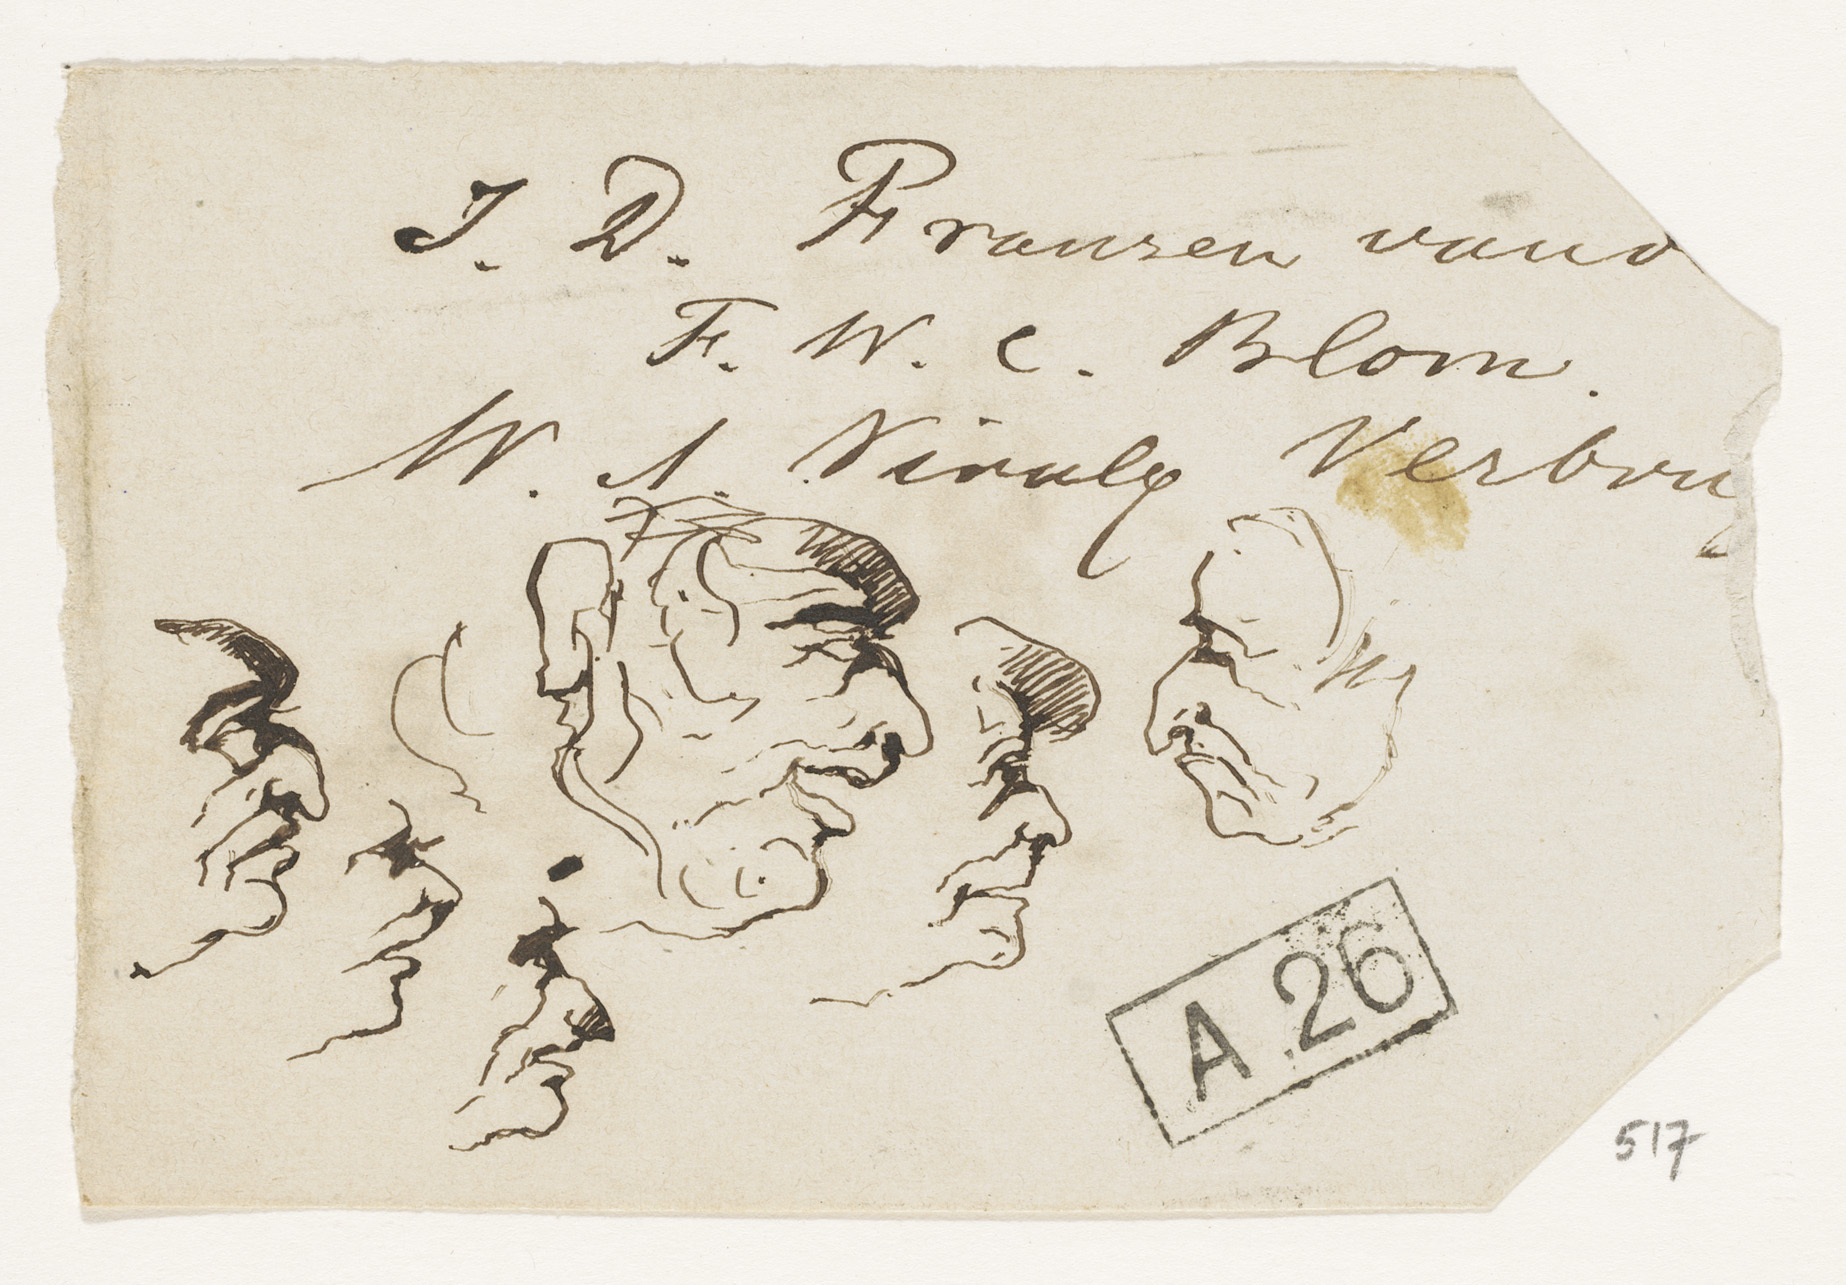 J. D. Fransen vand
F. W. C. Blom.
W. A. Viruly Verbru
A 26
517